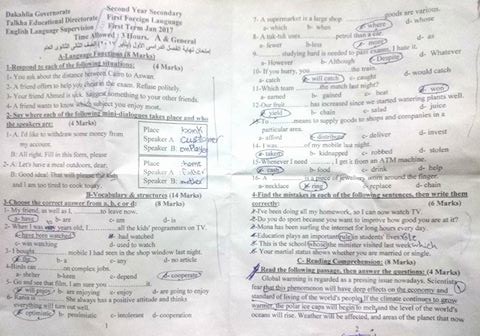 Dakahlia Governorate
Talkha Educational Directorate
English Language Supervision
Second Year Secondary
First Foreign Language
First Term Jan 2017
Time Allowed: 3 Hours. A & General
A-Language Functions (8 Marks)
1-Respond to each of the following situations: (4 Marks)
1- You ask about the distance between Cairo to Aswan.
2- A friend offers to help you clean in the exam. Refuse politely.
3- Your friend Ahmed is sick. Suggest something to your other friends.
4- A friend wants to know which subject you enjoy most.
2- Say where each of the following mini-dialogues takes place and who
the speakers are: (4 Marks)
1- A. I'd like to withdraw some money from
my account.
B: All right. Fill in this form, please
Place bank
Speaker A customer
Speaker B: employee
2- A. Let's have a most outdoors, dear.
B: Good idea! That will please the kids
and I am too tired to cook today.
Place home
Speaker A
Speaker B: mother
B-Vocabulary & structures (14 Marks)
3-Choose the correct answer from a, b, c or d: (8 Marks)
1- My friend, as well as I, to leave now.
a- have b- are c- am d- is
2- When I was years old, I all the kids' programmes on TV.
a- have been watched b- had watched
c- was watching d- used to watch
3- I bought mobile I had seen in the shop window last night.
a- the b- a c- any d- no article
4-Birds on complex jobs.
a- shelter b- keen c- depend d- cooperate
5- Go and see that film. I am sure you it.
a- will enjoy b- are enjoying c- enjoy d- are going to enjoy
6- Rania is She always has a positive attitude and thinks
everything will turn out well.
a- optimistic b- pessimistic c- intolerant d- cooperation
1
7- A supermarket is a large shop goods are various.
a- which b- when c- where d- whose
8- A tuk-tuk uses petrol than a car.
a- fewer b- less c- more d- as
9- studying hard is needed to pass exams, I hate it.
a- However b- Although c- Despite d- Whatever
10- If you hurry, you the train.
a- catch b- will catch c- caught d- would catch
11-Which team the match last night?
a- earned b- gained c- beat d- won
12-Our fruit has increased since we started watering plants well.
a- yield b- chain c- salad d- juice
13- To means to supply goods to shops and companies in a
particular area.
a- afford b- distribute c- deliver d- invest
14- I was of my mobile last night.
a- taken b- kidnapped c- robbed d- stolen
15-Whenever I need I get it from an ATM machine.
a- cash b- food c- drink d- help
16- A is a piece of jewelry, worn around the finger.
a- necklace b- ring c- replace d- chain
4-Find the mistakes in each of the following sentences, then write them
correctly: (6 Marks)
1- I've been doing all my homework, so I can now watch TV.
2- Do you do sport because you want to improve how good you are at it?
3- Mona has been surfing the internet for long hours every day.
4- Education plays an important rule in students' lives. role
5- This is the school whose the minister visited last week which
6- Your martial status shows whether you are married or single.
C- Reading Comprehension: (8 Marks)
5- Read the following passage, then answer the questions: (4 Marks)
Global warming is regarded as a pressing issue nowadays. Scientists
fear that this phenomenon will have deep effects on the economy and
standard of living of the world's people. If the climate continues to grow
warmer, the polar ice caps will begin to melt and the level of the world's
oceans will rise. Weather will be affected, and areas of the planet that now